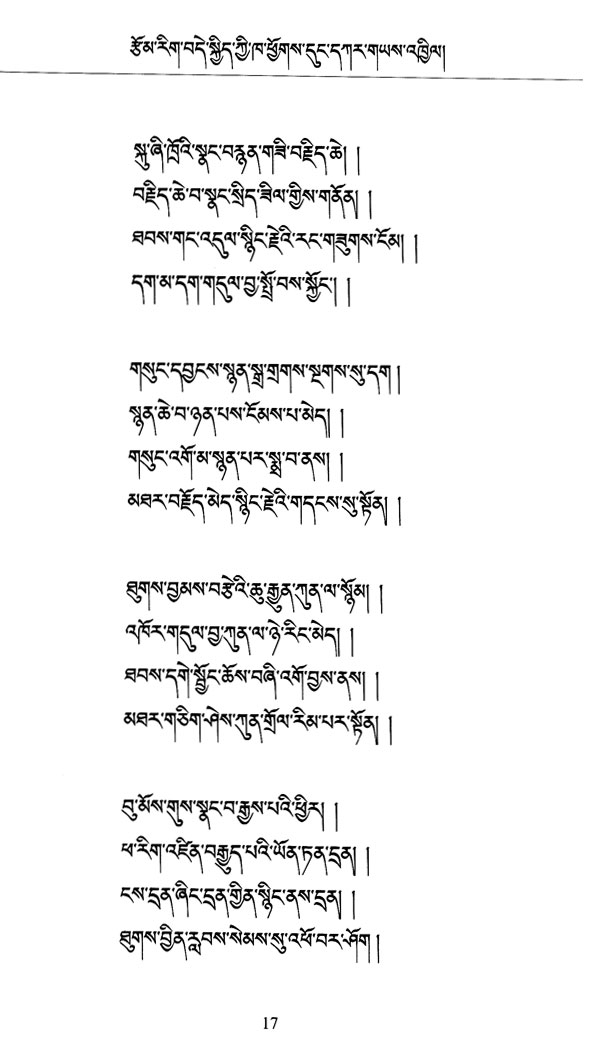 རྩོམ་རིག་བདེ་སྐྱིད་ཀྱི་ཁ་ཕྱོགས་དུང་དཀར་གཡས་འཁྱིལ།
སྐུ་ཞི་ཁྲོའི་སྣང་བརྙན་གཟི་བརྗིད་ཆེ། །
བརྗིད་ཆེ་བ་སྣང་སྲིད་ཟིལ་གྱིས་གནོན། །
ཐབས་གང་འདུལ་སྙིང་རྗེའི་རང་གཟུགས་ངོམ། །
དག་མ་དག་གདུལ་བྱ་སྤྲོ་བས་སྐྱོང་། །
གསུང་དབྱངས་སྙན་སྒྲ་གྲགས་སྔགས་སུ་དག །
སྙན་ཆེ་བ་ཉན་པས་ངོམས་པ་མེད། །
གསུང་འགོ་མ་སྙན་པར་སྨྲ་བ་ནས། །
མཐར་བརྗོད་མེད་སྙིང་རྗེའི་གདངས་སུ་སྟོན། །
ཐུགས་བྱམས་བརྩེའི་ཆུ་རྒྱུན་ཀུན་ལ་སྙོམ། །
འཁོར་གདུལ་བྱ་ཀུན་ལ་ཉེ་རིང་མེད། །
ཐབས་དགེ་སྦྱོང་ཆོས་བཞི་འགོ་བྱས་ནས། །
མཐར་གཅིག་ཤེས་ཀུན་གྲོལ་རིམ་པར་སྟོན། །
བུ་མོས་གུས་སྣང་བ་རྒྱས་པའི་ཕྱིར། །
ཕ་རིག་འཛིན་བརྒྱུད་པའི་ཡོན་ཏན་དྲན། །
ངས་དྲན་ཞིང་དྲན་གྱིན་སྙིང་ནས་དྲན། །
ཐུགས་བྱིན་རླབས་སེམས་སུ་འཕོ་བར་ཤོག །
17